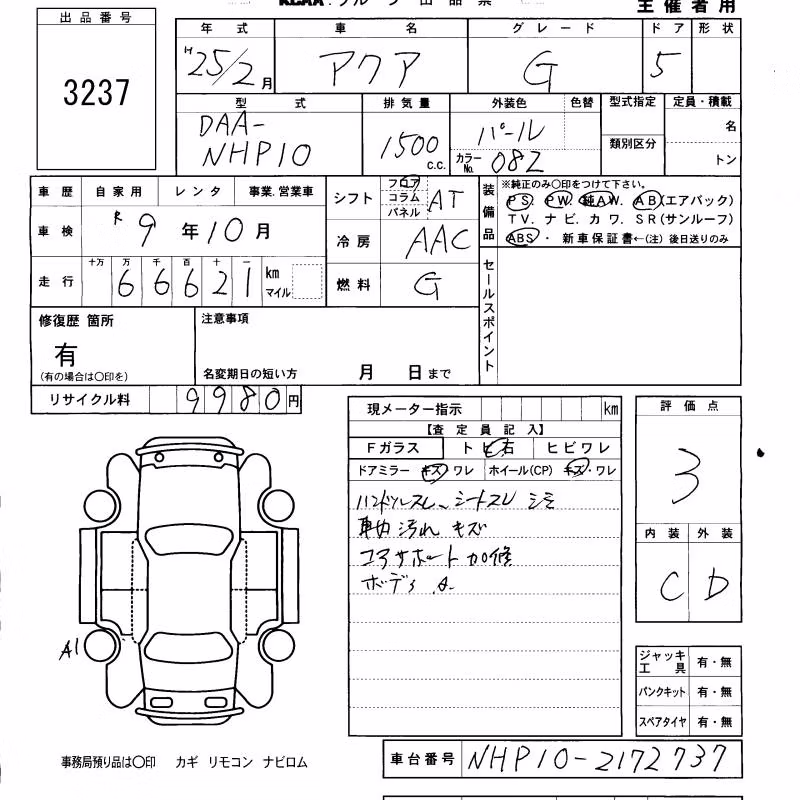 主催者用
出品番号
3237
年式 車名 グレード ドア 形状
H25/2月 アクア G 5
型式 排気量 外装色 色替 型式指定 定員・積載
DAA-NHP10 1500 c.c. パール 名
カラーNo. 082 類別区分 トン
車歴 自家用 レンタ 事業.営業車
シフト フロア コラム パネル AT
装備品 ※純正のみ〇印をつけて下さい。
PS. PW. 純AW. AB(エアバック)
TV. ナビ. カワ. SR(サンルーフ)
ABS・ 新車保証書←(注) 後日送りのみ
車検 R9年10月
冷房 AAC
走行 十万 万 千 百 十 一
66621 km マイル
燃料 G
セールスポイント
修復歴 箇所
有
(有の場合は〇印を)
注意事項
名変期日の短い方 月 日まで
リサイクル料 9980円
現メーター指示 km
【査定員記入】
Fガラス トビ石 ヒビワレ
ドアミラー キズ・ワレ ホイール(CP) キズ・ワレ
ハンドルスレ シートスレ シミ
車内汚れ キズ
コアサポート加修
ボディ
評価点
3
内装 外装
C D
A1
ジャッキ工具 有・無
パンクキット 有・無
スペアタイヤ 有・無
事務局預り品は〇印 カギ リモコン ナビロム
車台番号 NHP10-2172737